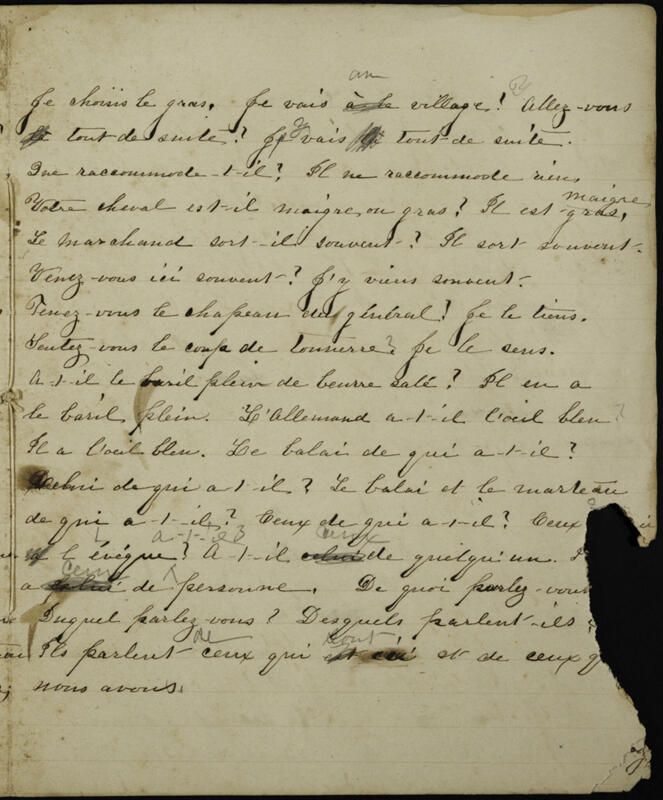 au
Je choisis le gras. Je vais à le village! Allez-vous
y tout-de suite? J'y vais tout-de suite.
Que raccommode-t-il? Il ne raccommode rien.
maigre
Votre cheval est-il maigre ou gras? Il est gras.
Le marchand sort-il souvent? Il sort souvent.
Venez-vous ici souvent? J'y viens souvent.
Tenez-vous le chapeau du général? Je le tiens.
Sentez-vous le coup de tonnerre? Je le sens.
A-t-il le baril plein de beurre salé? Il en a
le baril plein. L'Allemand a-t-il l'oeil bleu?
Il a l'oeil bleu. Le balai de qui a-t-il?
Celui de qui a-t-il? Le balai et le marteau
de qui a-t-il? Ceux de qui a-t-il? Ceux
a-t-il ceux
l'évêque? A-t-il celui de quelqu'un.
ceux
a celui de personne. De quoi parlez-vous
Duquel parlez-vous? Desquels parlent-ils
de sont
Ils parlent ceux qui est ici et de ceux q
nous avons.